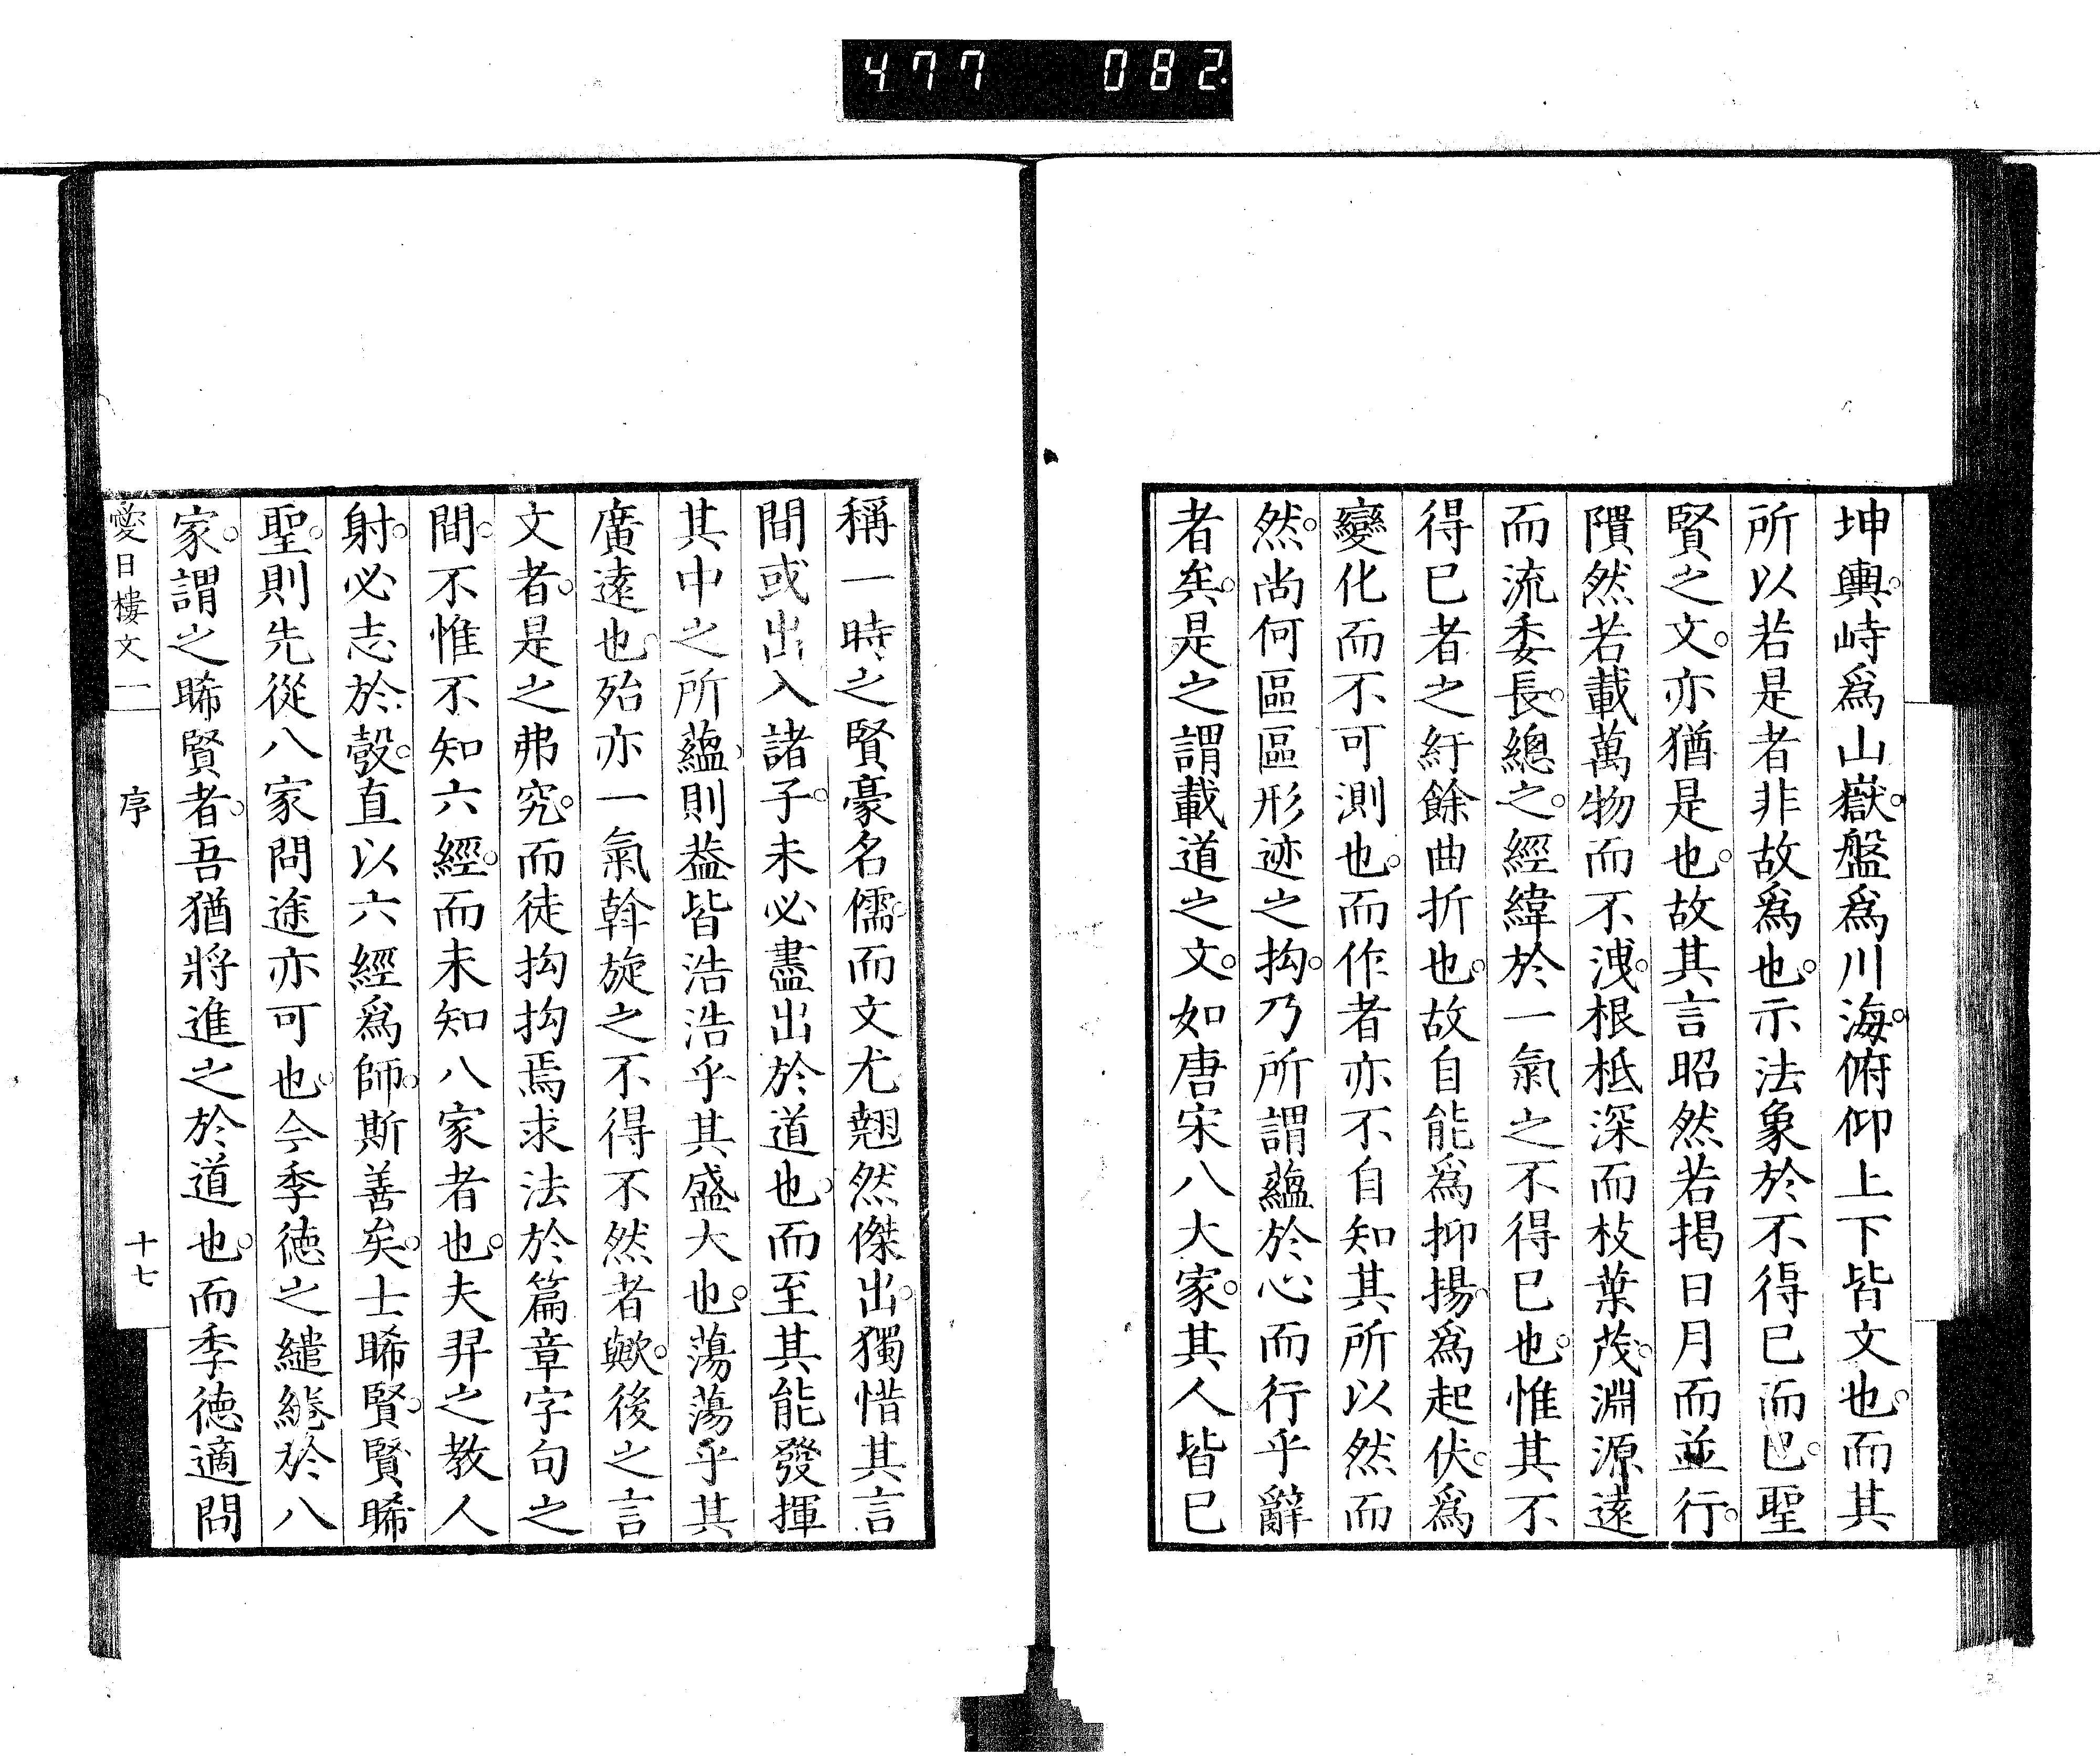 477 082
坤輿。峙爲山嶽。盤爲川海。俯仰上下皆文也。而其
所以若是者非故爲也。示法象於不得已而已。聖
賢之文。亦猶是也。故其言昭然若掲日月而並行。
隤然若載萬物而不洩。根柢深而枝葉茂。淵源遠
而流委長。總之。經緯於一氣之不得已也。惟其不
得已者之紆餘曲折也。故自能爲抑揚。爲起伏。爲
變化而不可測也。而作者亦不自知其所以然而
然。尚何區區形迹之拘。乃所謂蘊於心而行乎辭
者矣。是之謂載道之文。如唐宋八大家。其人皆已
稱一時之賢豪名儒。而文尤翹然傑出。獨惜其言
間或出入諸子。未必盡出於道也。而至其能發揮
其中之所蘊。則葢皆浩浩乎其盛大也。蕩蕩乎其
廣遠也。殆亦一氣斡旋之不得不然者歟。後之言
文者。是之弗究。而徒拘拘焉求法於篇章字句之
間。不惟不知六經。而未知八家者也。夫羿之教人
射。必志於彀。直以六經爲師。斯善矣。士睎賢。賢睎
聖。則先從八家問途亦可也。今季徳之繾綣於八
家。謂之睎賢者。吾猶將進之於道也。而季徳適問
愛日樓文一 序 十七